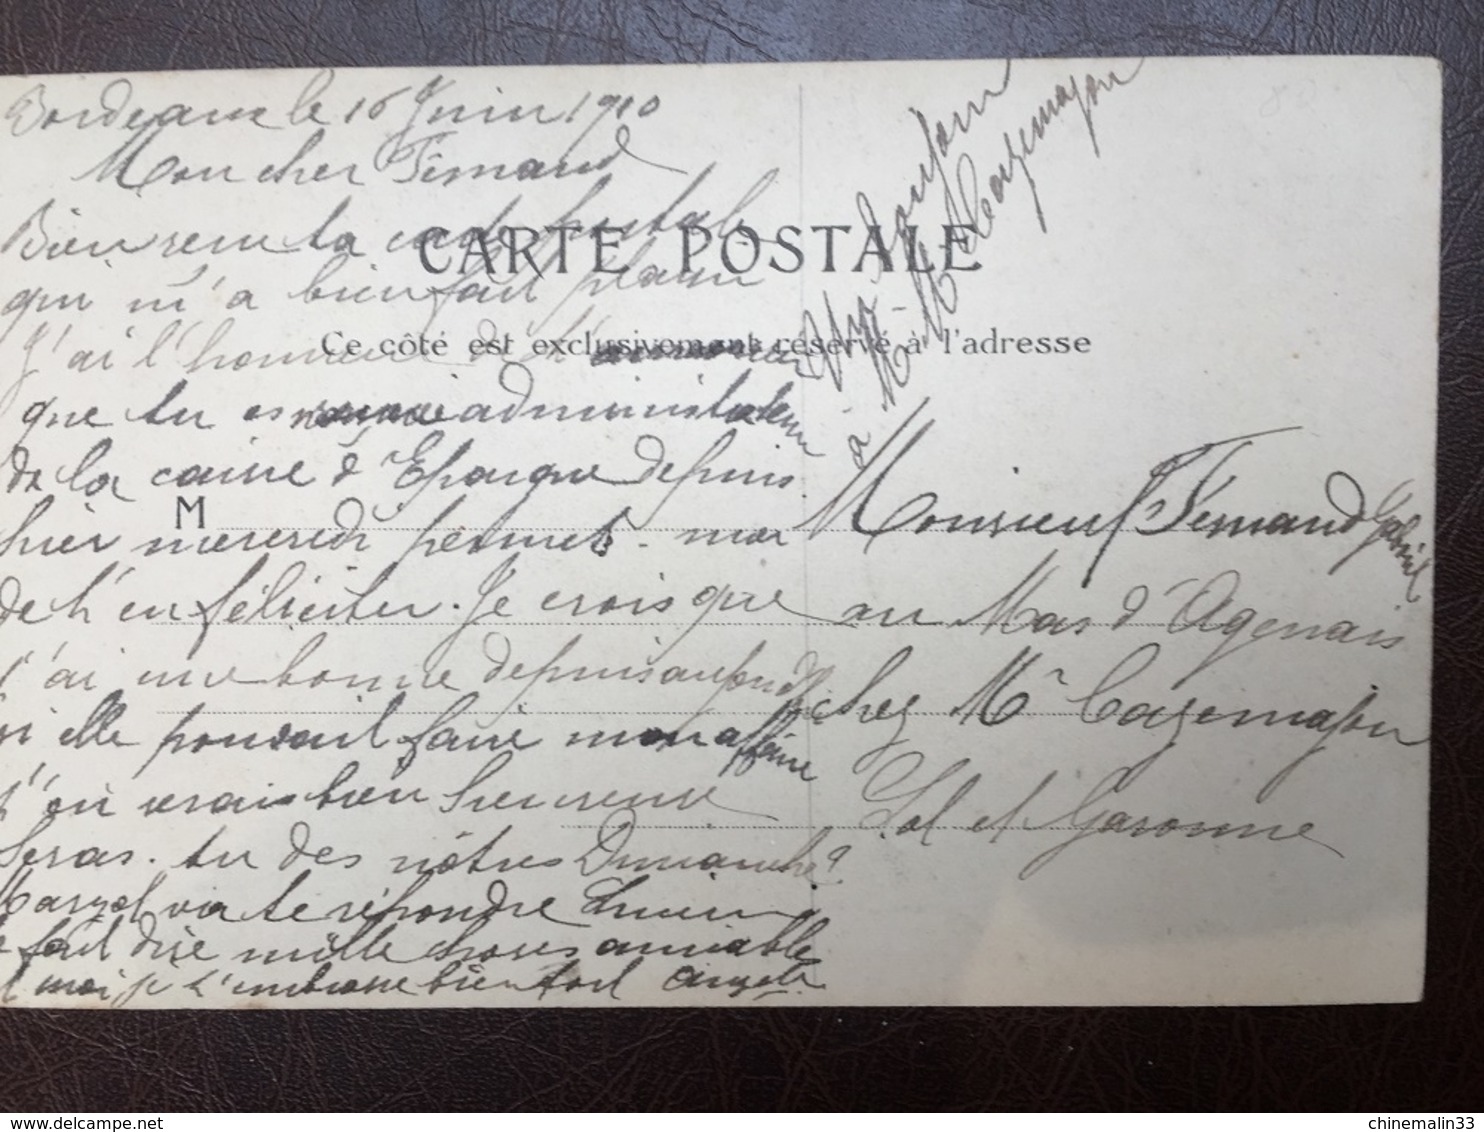 Bordeaux le 16 Juin 1910
Mon cher Fernand
Bien reçu ta carte postale
qui m'a bien fait plaisir
J'ai l'honneur d'
que tu es administrateur
de la caisse d'Epargne depuis
hier mercredi permet-moi
de t'en féliciter. Je crois que
j'ai une bonne depuis aujourd'hui
si elle pouvait faire mon affaire
j'en serais bien heureuse
Seras-tu des nôtres Dimanche?
va te répondre
te fait dire mille choses aimable
et moi je t'embrasse bien fort Angèle
CARTE POSTALE
Ce côté est exclusivement réservé à l'adresse
M
à M. M. Cazemajou
Monsieur Fernand Gabriel
au Mas d'Agenais
chez Mr Cazemajou
Lot et Garonne
delcampe.net
chinemalin33